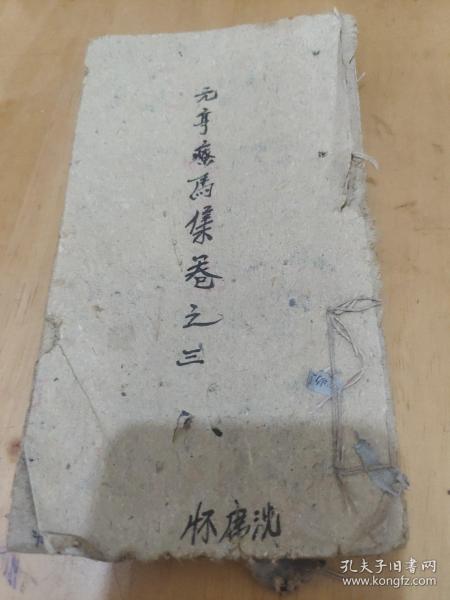 元亨療馬集卷之三
六
怀席洗
孔夫子旧书网
www.kongfz.com